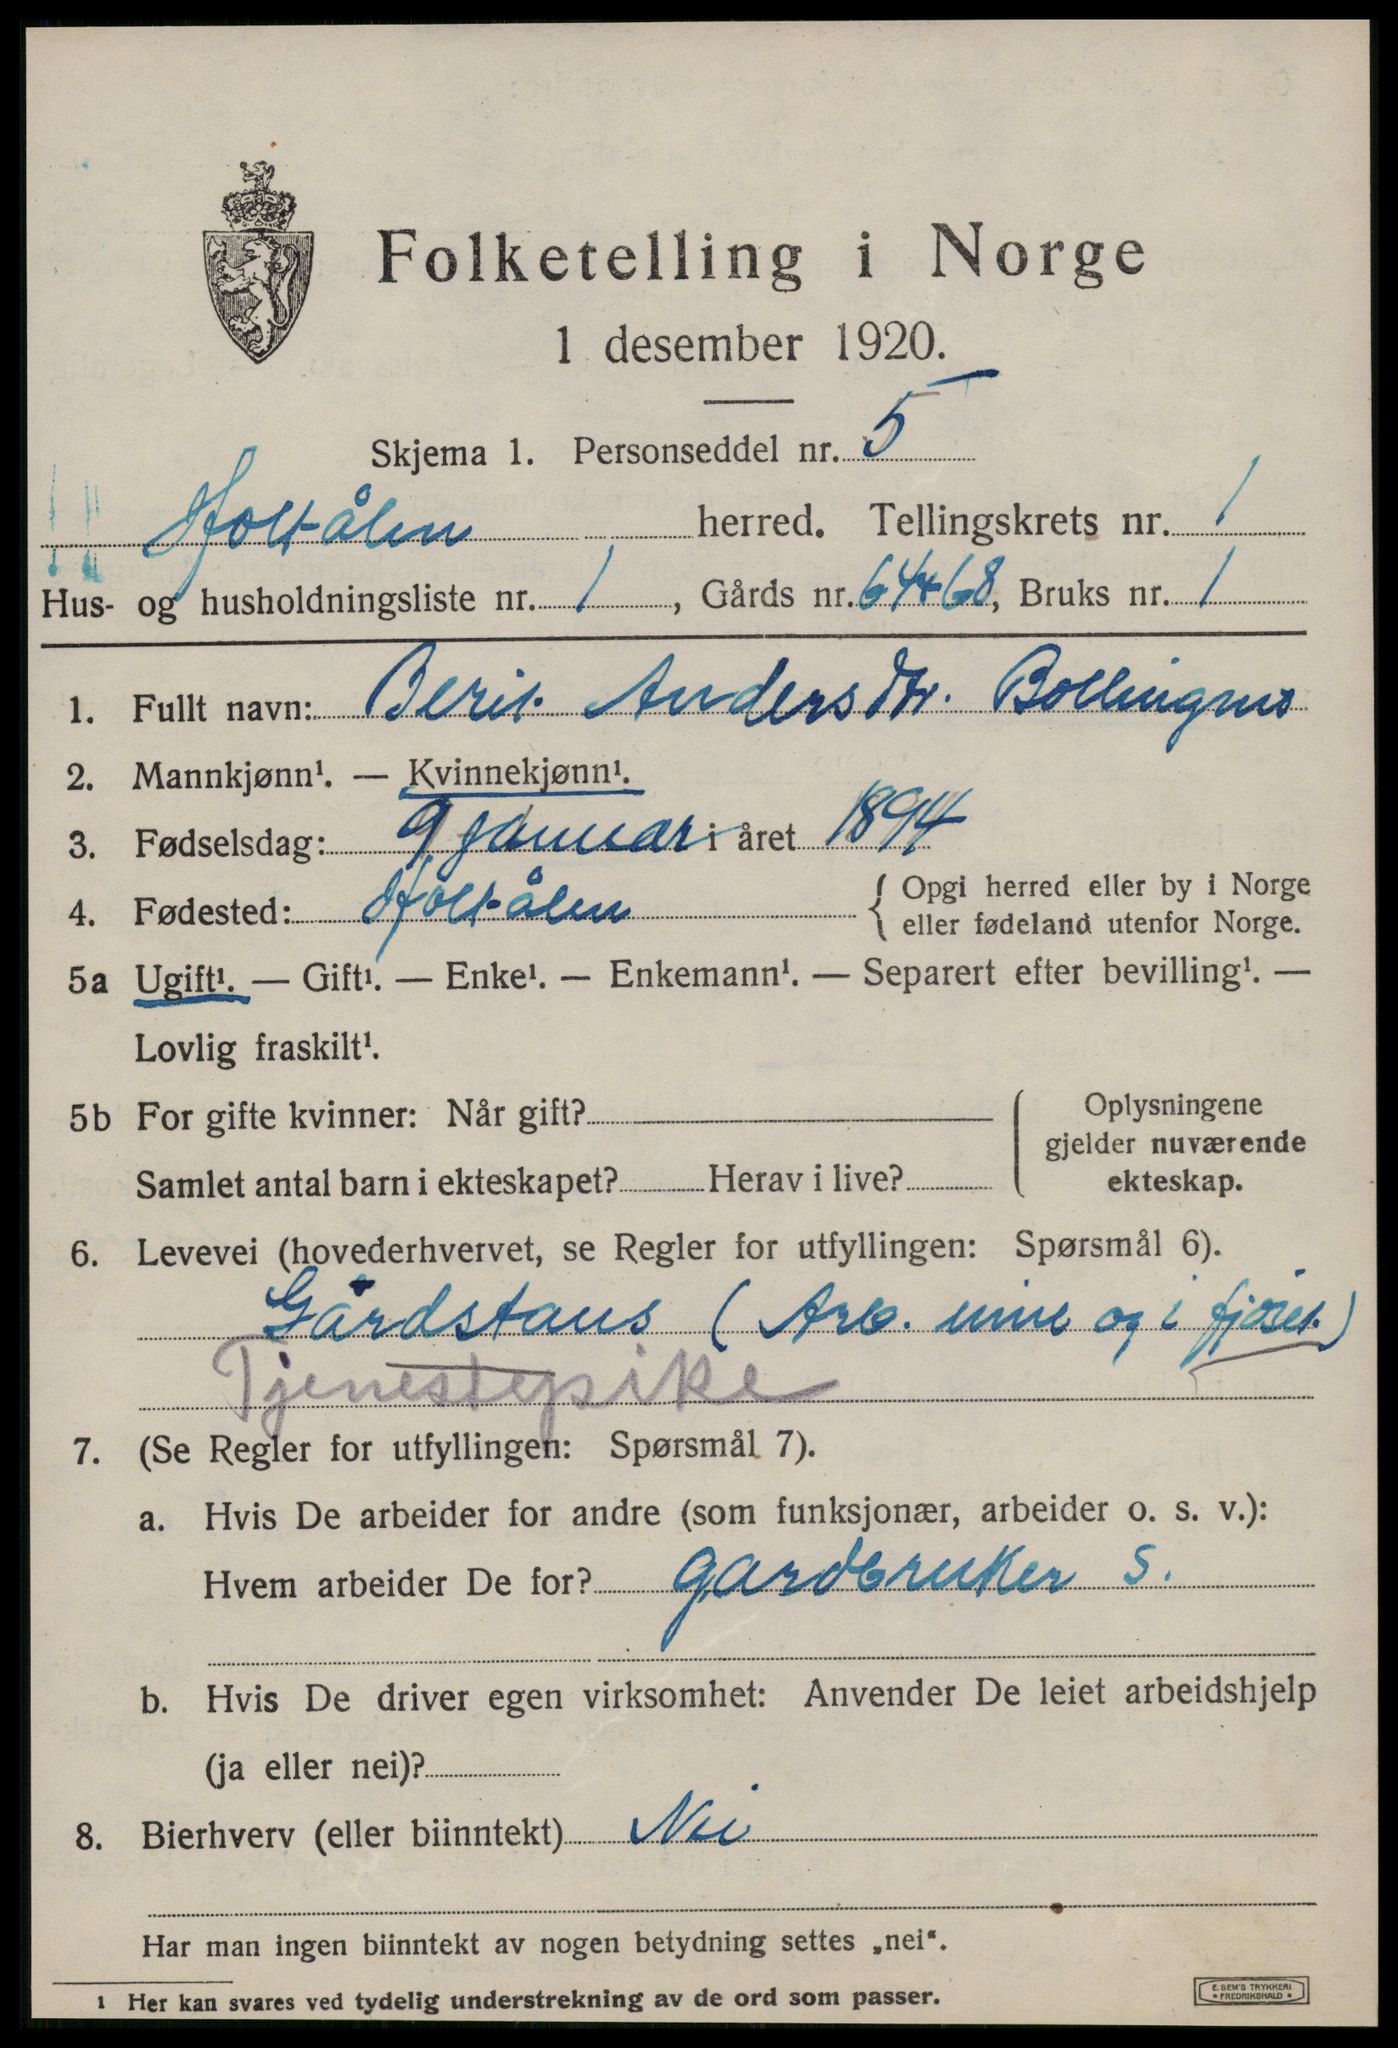 Folketelling i Norge
1 desember 1920.
Skjema 1. Personseddel nr. 5
Holtålen herred. Tellingskrets nr. 1
Hus- og husholdningsliste nr. 1, Gårds nr. 64+68, Bruks nr. 1
1. Fullt navn: Berit Andersdtr. Bollingmo
2. Mannkjønn¹. — Kvinnekjønn¹.
3. Fødselsdag: 9 januar i året 1894
4. Fødested: Holtålen { Opgi herred eller by i Norge
eller fødeland utenfor Norge.
5a Ugift¹. — Gift¹. — Enke¹. — Enkemann¹. — Separert efter bevilling¹. —
Lovlig fraskilt¹.
5b For gifte kvinner: Når gift? { Oplysningene
gjelder nuværende
Samlet antal barn i ekteskapet? Herav i live? ekteskap.
6. Levevei (hovederhvervet, se Regler for utfyllingen: Spørsmål 6).
Gårdstaus (Arb. inne og i fjøset)
Tjenestepike
7. (Se Regler for utfyllingen: Spørsmål 7).
a. Hvis De arbeider for andre (som funksjonær, arbeider o. s. v.):
Hvem arbeider De for? gardbruker S.
b. Hvis De driver egen virksomhet: Anvender De leiet arbeidshjelp
(ja eller nei)?
8. Bierhverv (eller biinntekt) Nei
Har man ingen biinntekt av nogen betydning settes „nei“.
1 Her kan svares ved tydelig understrekning av de ord som passer.
E. SEM'S TRYKKERI
FREDRIKSHALD